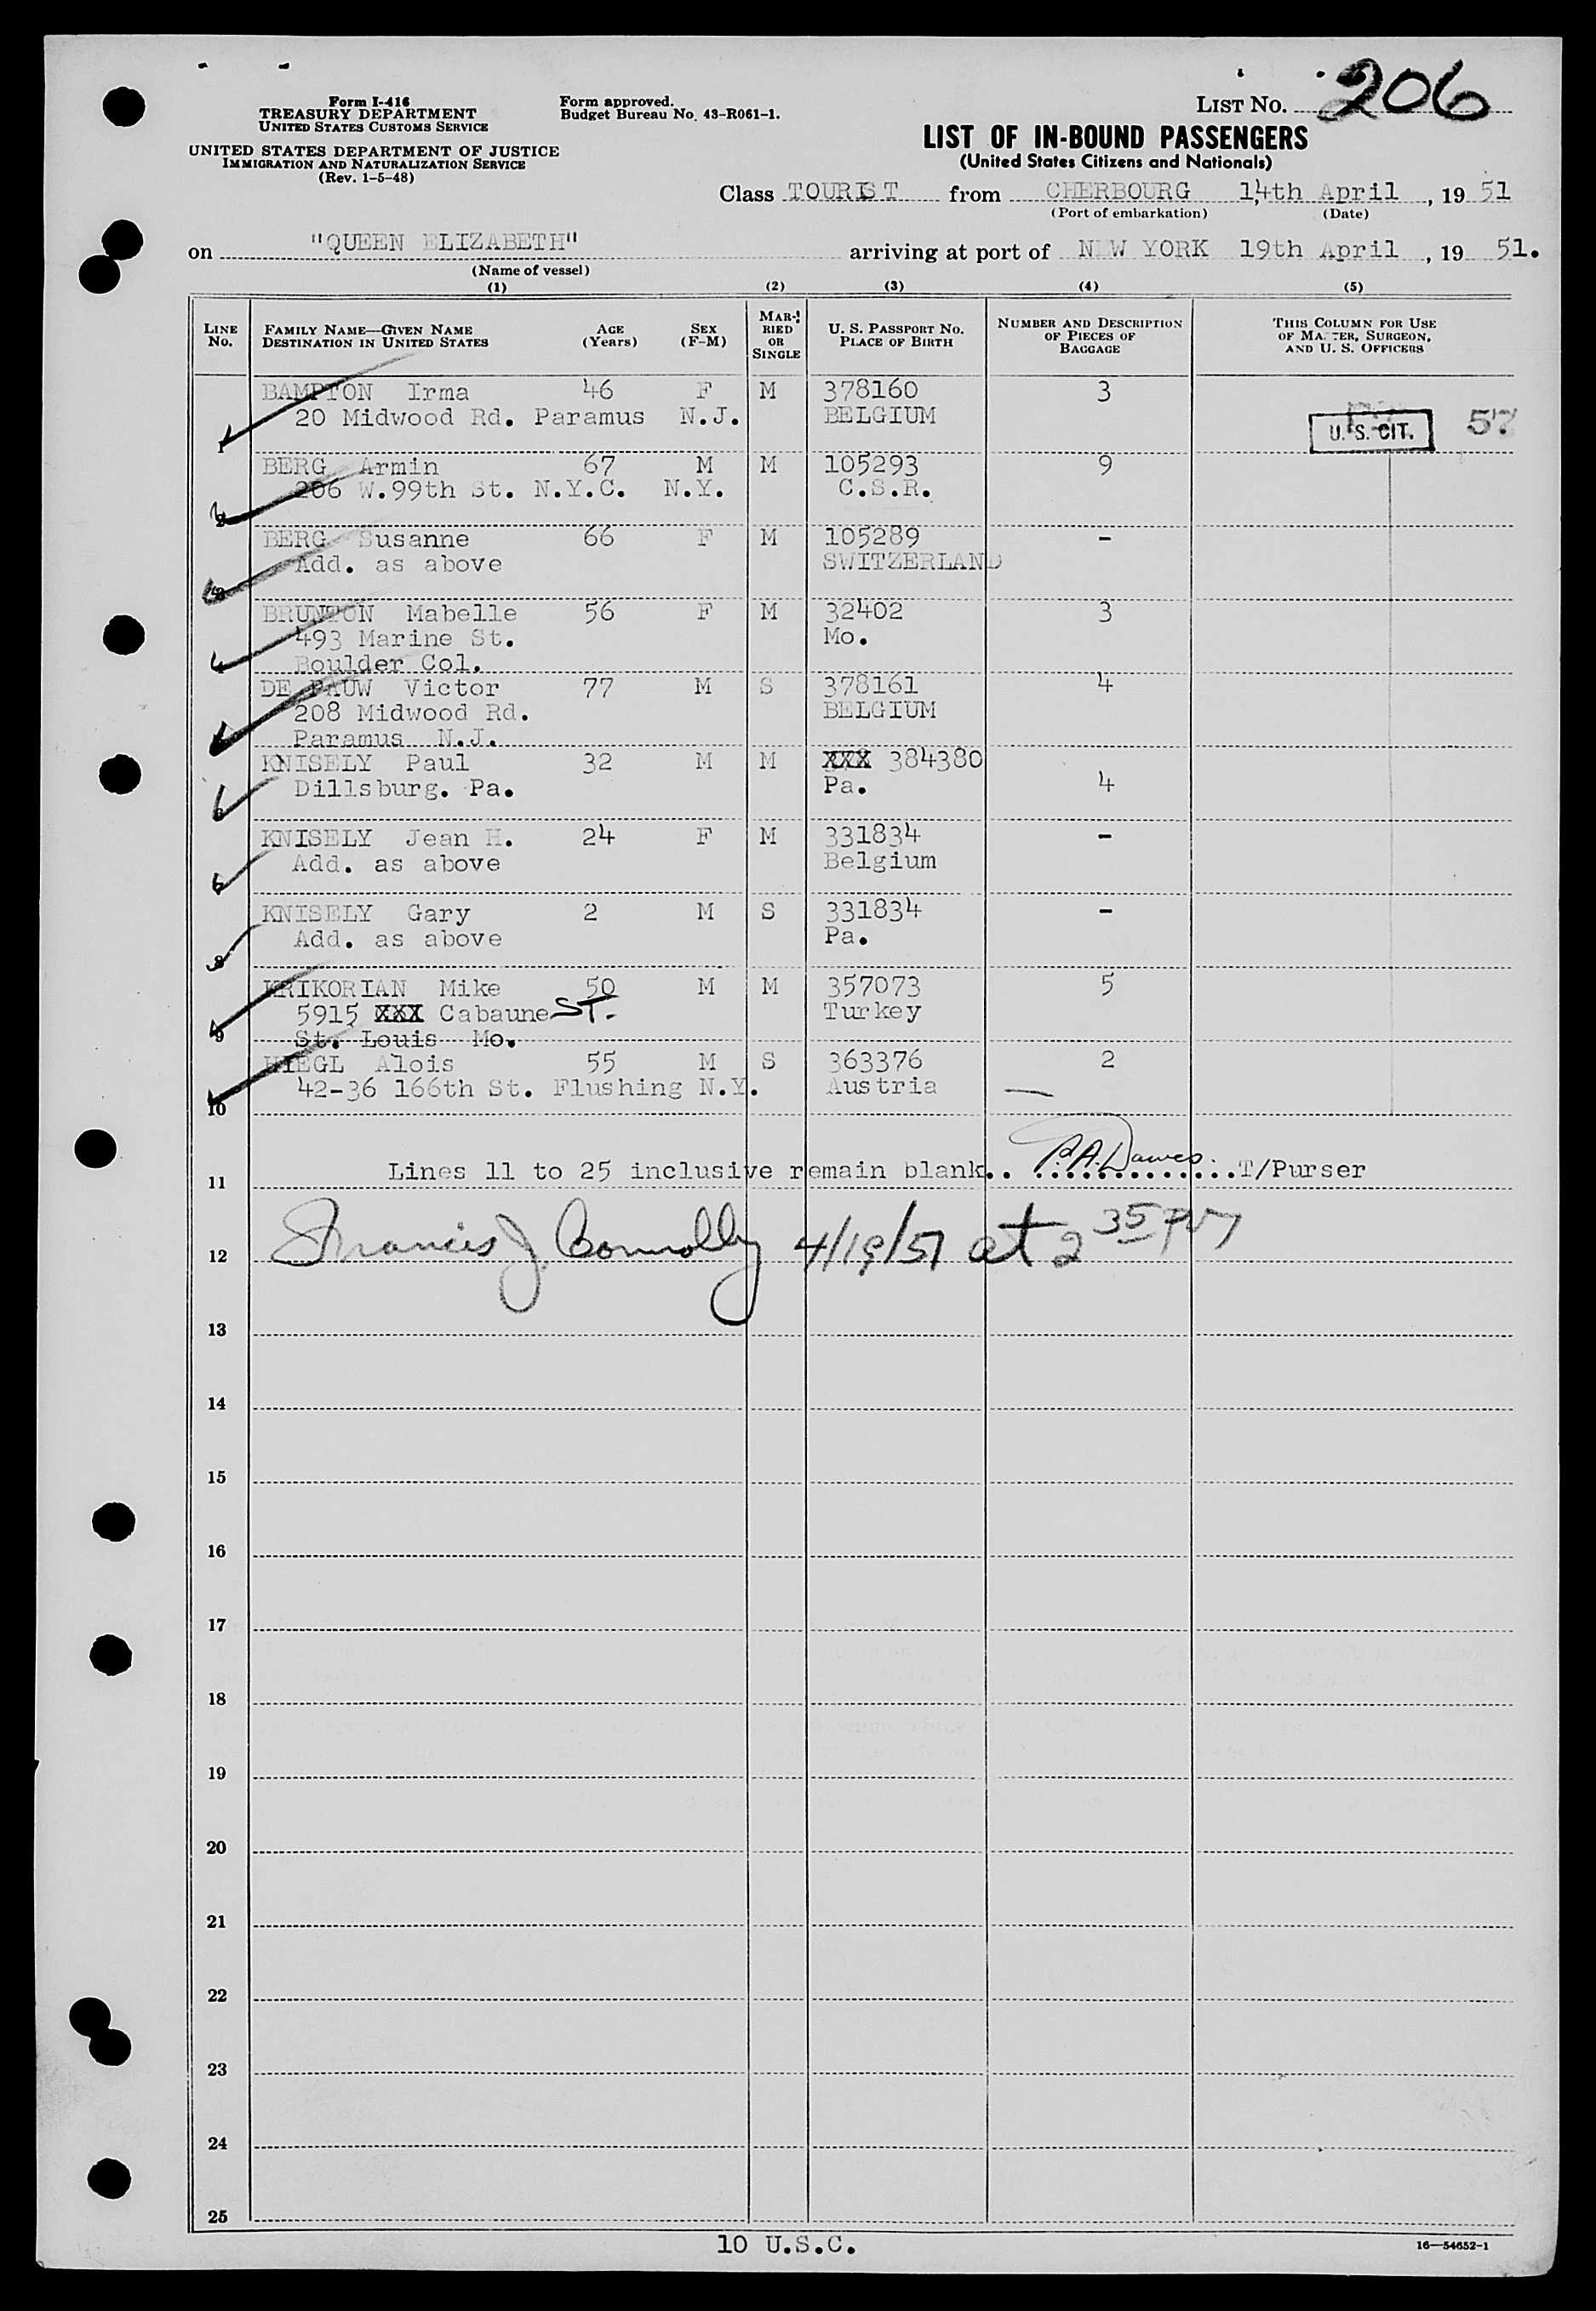 LIST NO. 206
Form I-416
TREASURY DEPARTMENT
UNITED STATES CUSTOMS SERVICE
Form approved.
Budget Bureau No. 43-R061-1.
UNITED STATES DEPARTMENT OF JUSTICE
IMMIGRATION AND NATURALIZATION SERVICE
(Rev. 1-5-48)
LIST OF IN-BOUND PASSENGERS
(United States Citizens and Nationals)
Class TOURIST from CHERBOURG 14th April, 19 51
(Port of embarkation) (Date)
on "QUEEN ELIZABETH" arriving at port of NEW YORK 19th April, 19 51.
(Name of vessel)
(1) (2) (3) (4) (5)
LINE NO. FAMILY NAME—GIVEN NAME DESTINATION IN UNITED STATES AGE (Years) SEX (F-M) MARRIED OR SINGLE U. S. PASSPORT NO. PLACE OF BIRTH NUMBER AND DESCRIPTION OF PIECES OF BAGGAGE THIS COLUMN FOR USE OF MASTER, SURGEON, AND U. S. OFFICERS
BAMPTON Irma 46 F M 378160 3
20 Midwood Rd. Paramus N.J. BELGIUM U. S. CIT. 57
1
BERG Armin 67 M M 105293 9
206 W.99th St. N.Y.C. N.Y. C.S.R.
2
BERG Susanne 66 F M 105289 -
Add. as above SWITZERLAND
3
BRUNTON Mabelle 56 F M 32402 3
493 Marine St. Mo.
4 Boulder Col.
DE PAUW Victor 77 M S 378161 4
208 Midwood Rd. BELGIUM
5 Paramus N.J.
KNISELY Paul 32 M M XXX 384380
Dillsburg. Pa. Pa. 4
6
KNISELY Jean H. 24 F M 331834 -
Add. as above Belgium
KNISELY Gary 2 M S 331834 -
Add. as above Pa.
8
KRIKORIAN Mike 50 M M 357073 5
5915 XXX Cabaune ST. Turkey
9 St. Louis Mo.
Alois 55 M S 363376 2
42-36 166th St. Flushing N.Y. Austria
10
11 Lines 11 to 25 inclusive remain blank.. P.A. Dawes T/Purser
12 Francis J. Connolly 4/19/51 at 2 35 PM
13
14
15
16
17
18
19
20
21
22
23
24
25
10 U.S.C.
16—54652-1